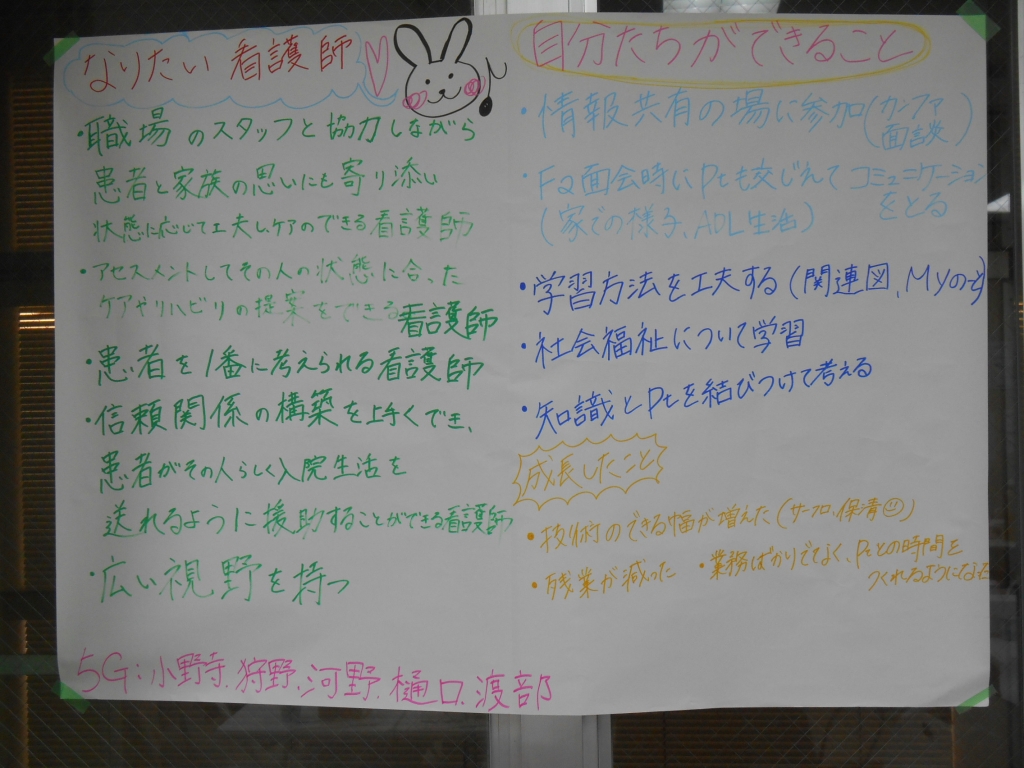 なりたい看護師
・職場のスタッフと協力しながら
患者と家族の思いにも寄り添い
状態に応じて工夫し、ケアのできる看護師
・アセスメントしてその人の状態に合った
ケアやリハビリの提案をできる看護師
・患者を1番に考えられる看護師
・信頼関係の構築を上手くでき、
患者がその人らしく入院生活を
送れるように援助することができる看護師
・広い視野を持つ
5G:小野寺、狩野、河野、樋口、渡部
自分たちができること
・情報共有の場に参加(カンファ
面談)
・Fa面会時にPtも交じえてコミュニケーション
をとる
(家での様子、ADL生活)
・学習方法を工夫する(関連図、Myのォ)
・社会福祉について学習
・知識とPtを結びつけて考える
成長したこと
・技術のできる幅が増えた(サーフロ、保清)
・残業が減った
・業務ばかりでなく、Ptとの時間を
つくれるようになった